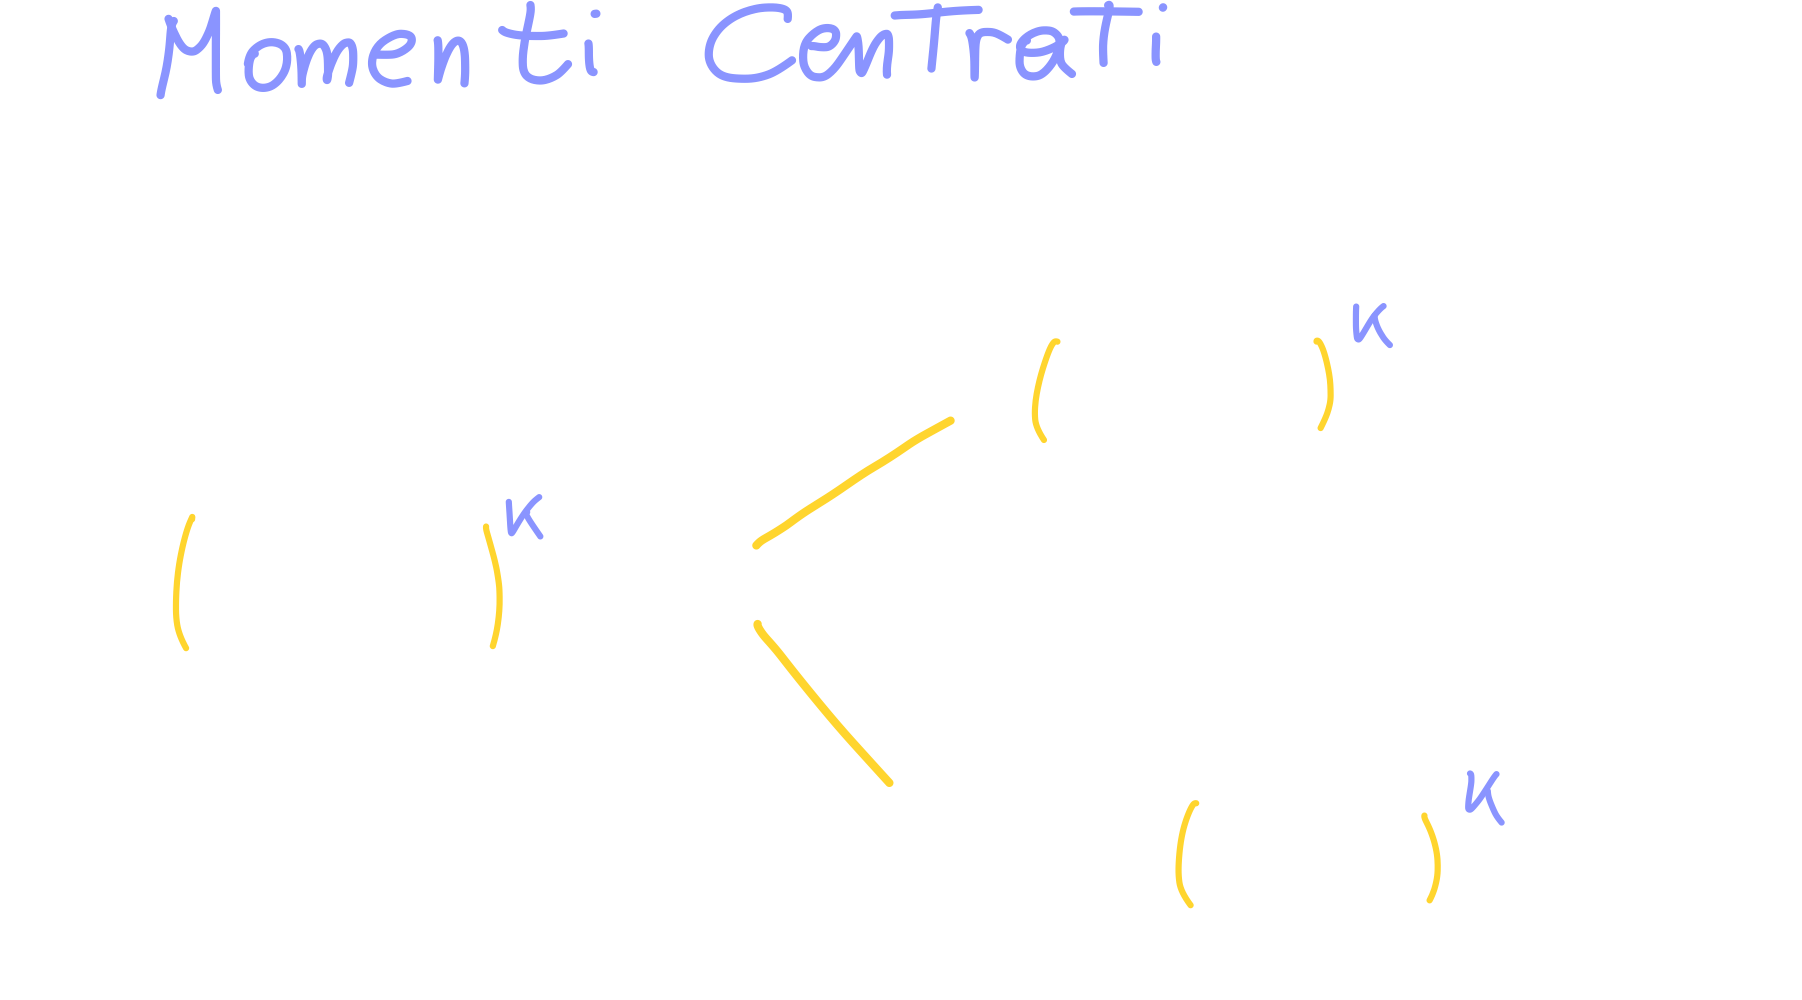 Momenti Centrati
( )^K
( )^K
( )^K